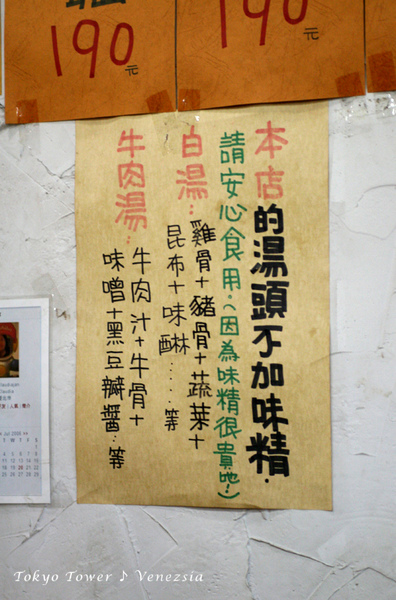 190元
190元
本店的湯頭不加味精.
請安心食用.(因為味精很貴地!)
白湯:雞骨+豬骨+蔬菜+
昆布+味醂....等
牛肉湯:牛肉汁+牛骨+
味噌+黑豆瓣醬..等
Tokyo Tower ♪ Venezsia